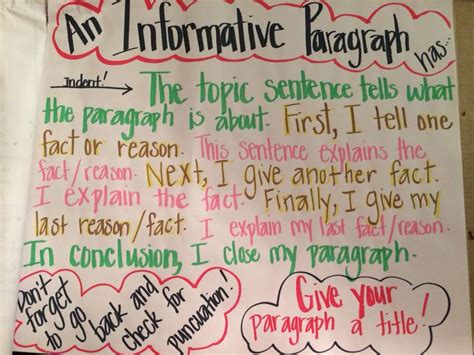 An Informative Paragraph has...
Indent! → The topic sentence tells what
the paragraph is about. First, I tell one
fact or reason. This sentence explains the
fact/reason. Next, I give another fact.
I explain the fact. Finally, I give my
last reason/fact. I explain my last fact/reason.
In conclusion, I close my paragraph.
Don't
forget
to go
back and
check for
puncuation!
Give your
paragraph a title!